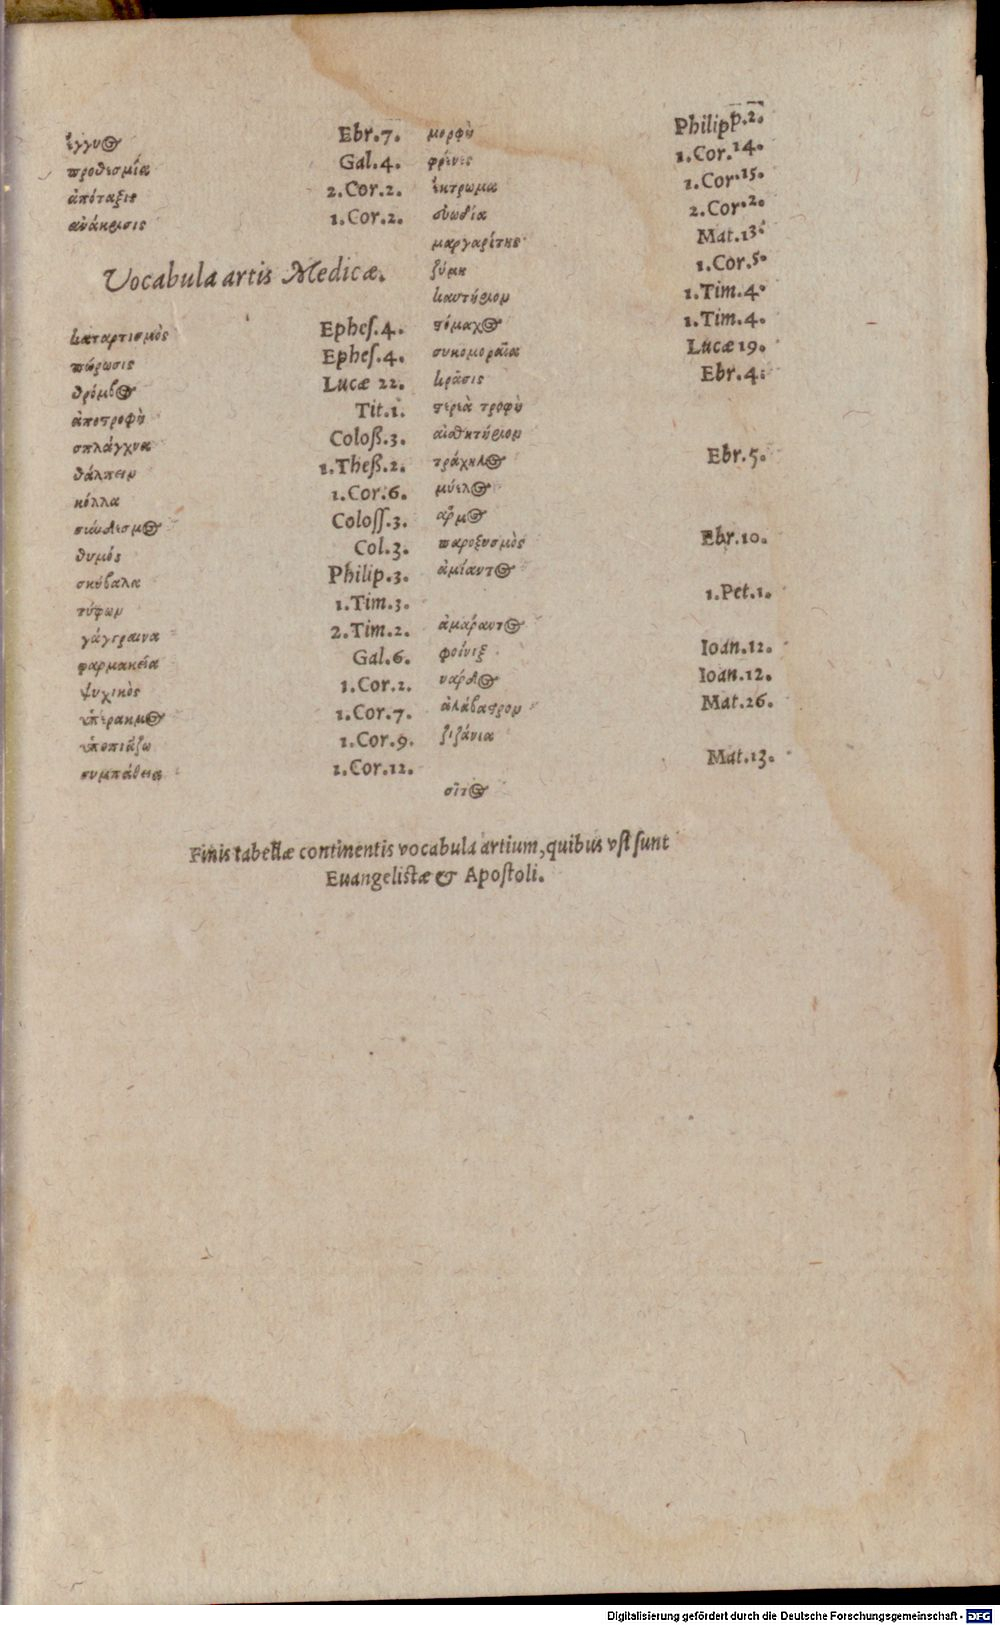 ἔγγυος Ebr.7.
προθεσμία Gal.4.
ἀπόταξις 2.Cor.2.
ἀνάκρισις 1.Cor.2.
Vocabula artis Medicæ.
καταρτισμὸς Epheſ.4.
πώρωσις Epheſ.4.
θρόμβος Lucæ 22.
ἀποτροφὴ Tit.1.
σπλάγχνα Coloß.3.
θάλπειν 1.Theß.2.
κόλλα 1.Cor.6.
σύνδεσμος Coloſſ.3.
θυμός Col.3.
σκύβαλα Philip.3.
τύφων 1.Tim.3.
γάγγραινα 2.Tim.2.
φαρμακεία Gal.6.
ψυχικὸς 1.Cor.2.
ὑπέρακμος 1.Cor.7.
ὑποπιάζω 1.Cor.9.
συμπάθεια 1.Cor.12.
μορφὴ Philipp.2.
φρένες 1.Cor.14.
ἔκτρωμα 1.Cor.15.
εὐωδία 2.Cor.2.
μαργαρίτης Mat.13.
ζύμη 1.Cor.5.
καυτήριον 1.Tim.4.
στόμαχος 1.Tim.4.
συκομοραῖα Lucæ 19.
κρᾶσις Ebr.4.
στερεὰ τροφὴ
αἰσθητήριον
τράχηλος Ebr.5.
μύελος
ἁρμος
παροξυσμὸς Ebr.10.
ἀμίαντος
1.Pet.1.
ἀμάραντος
φοίνιξ Ioan.12.
νάρδος Ioan.12.
ἀλάβαστρον Mat.26.
ζιζάνια
Mat.13.
σῖτος
Finis tabellæ continentis vocabula artium, quibus vſi ſunt
Euangelistæ & Apoſtoli.
Digitalisierung gefördert durch die Deutsche Forschungsgemeinschaft - DFG